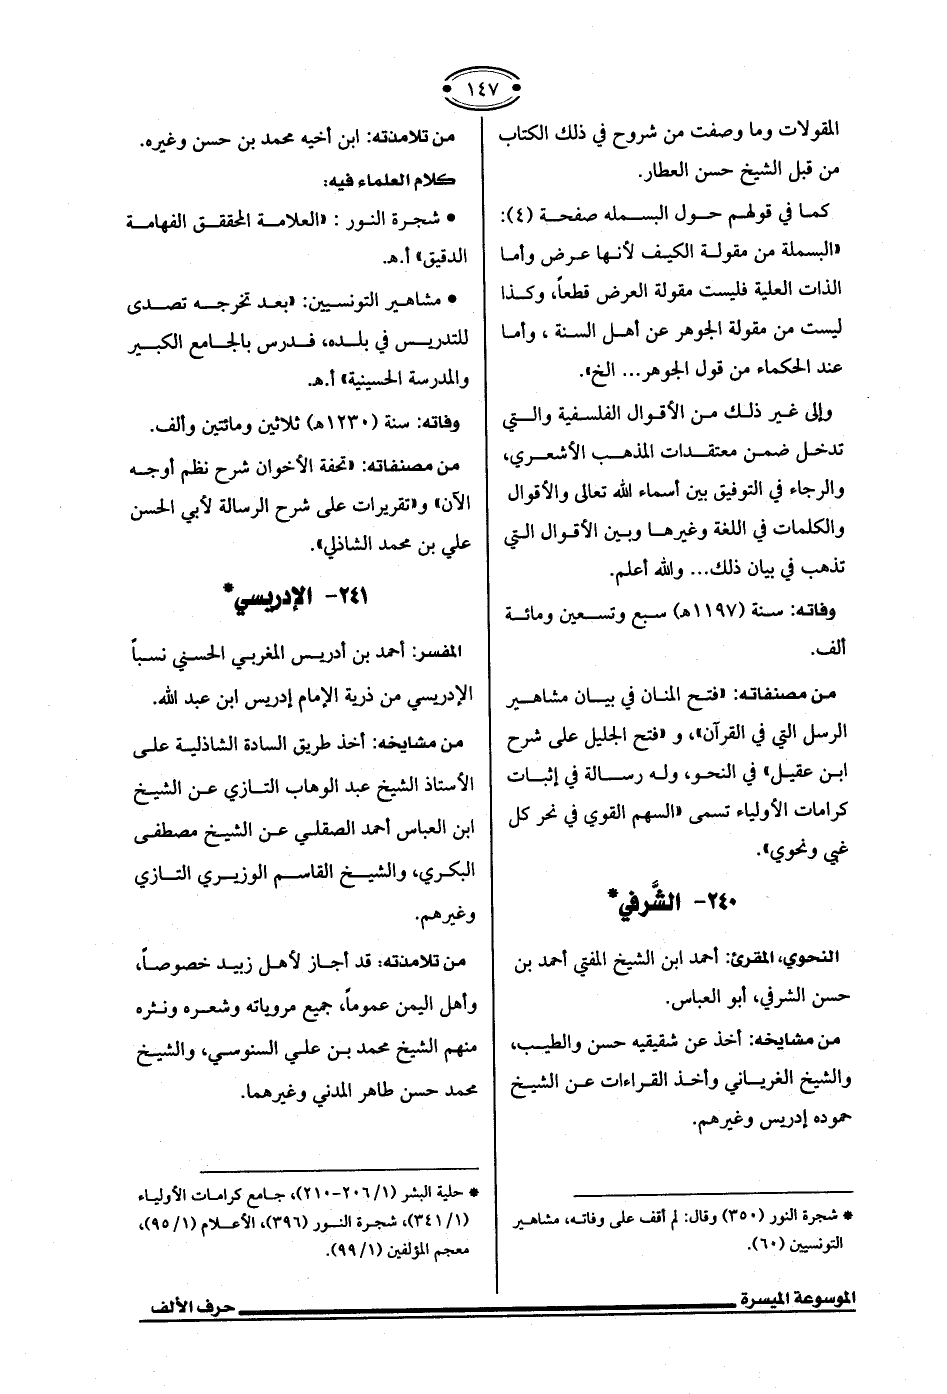 ١٤٧
المقولات وما وصفت من شروح في ذلك الكتاب
من قبل الشيخ حسن العطار.
كما في قولهم حول البسمله صفحة (٤):
«البسملة من مقولة الكيف لأنها عرض وأما
الذات العلية فليست مقولة العرض قطعاً، وكذا
ليست من مقولة الجوهر عن أهل السنة ، وأما
عند الحكماء من قول الجوهر... الخ».
وإلى غير ذلك من الأقوال الفلسفية والتي
تدخل ضمن معتقدات المذهب الأشعري،
والرجاء في التوفيق بين أسماء الله تعالى والأقوال
والكلمات في اللغة وغيرها وبين الأقوال التي
تذهب في بيان ذلك... والله أعلم.
وفاته: سنة (١١٩٧هـ) سبع وتسعين ومائة
ألف.
من مصنفاته: «فتح المنان في بيان مشاهير
الرسل التي في القرآن»، و «فتح الجليل على شرح
ابن عقيل» في النحو، وله رسالة في إثبات
كرامات الأولياء تسمى «السهم القوي في نحر كل
غبي ونحوي».
٢٤٠- الشَّرفي*
النحوي، المقرئ: أحمد ابن الشيخ المفتي أحمد بن
حسن الشرفي، أبو العباس.
من مشايخه: أخذ عن شقيقيه حسن والطيب،
والشيخ الغرياني وأخذ القراءات عن الشيخ
حموده إدريس وغيرهم.
* شجرة النور (٣٥٠) وقال: لم أقف على وفاته، مشاهير
التونسيين (٦٠).
من تلامذته: ابن أخيه محمد بن حسن وغيره.
كلام العلماء فيه:
• شجرة النور : «العلامة المحقق الفهامة
الدقيق» أ.هـ.
• مشاهير التونسيين: «بعد تخرجه تصدى
للتدريس في بلده، فدرس بالجامع الكبير
والمدرسة الحسينية» أ.هـ.
وفاته: سنة (١٢٣٠هـ) ثلاثين ومائتين وألف.
من مصنفاته: «تحفة الأخوان شرح نظم أوجه
الآن» و«تقريرات على شرح الرسالة لأبي الحسن
علي بن محمد الشاذلي».
٢٤١- الإدريسي*
المفسر: أحمد بن أدريس المغربي الحسني نسباً
الإدريسي من ذرية الإمام إدريس ابن عبد الله.
من مشايخه: أخذ طريق السادة الشاذلية على
الأستاذ الشيخ عبد الوهاب التازي عن الشيخ
ابن العباس أحمد الصقلي عن الشيخ مصطفى
البكري، والشيخ القاسم الوزيري التازي
وغيرهم.
من تلامذته: قد أجاز لأهل زبيد خصوصاً،
وأهل اليمن عموماً، جميع مروياته وشعره ونثره
منهم الشيخ محمد بن علي السنوسي، والشيخ
محمد حسن طاهر المدني وغيرهما.
* حلية البشر (٢٠٦/١-٢١٠)، جامع كرامات الأولياء
(٣٤١/١)، شجرة النور (٣٩٦)، الأعلام (٩٥/١)،
معجم المؤلفين (٩٩/١).
الموسوعة الميسرة حرف الألف